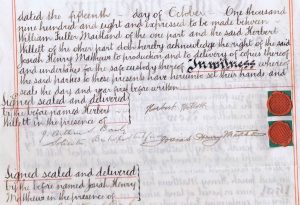 dated the fifteenth day of October One thousand
nine hundred and eight and expressed to be made between
William Fuller Maitland of the one part and the said Herbert
Willett of the other part doth hereby acknowledge the right of the said
Josiah Henry Mathews to production and to delivery of copies thereof
and undertakes for the safe custody thereof In witness whereof
the said parties to these presents have hereunto set their hands and
seals the day and year first before written
Signed sealed and delivered
by the before named Herbert
Willett in the presence of
Herbert Willett
Josiah Henry Mathews
Signed sealed and delivered
by the before named Josiah Henry
Mathews in the presence of